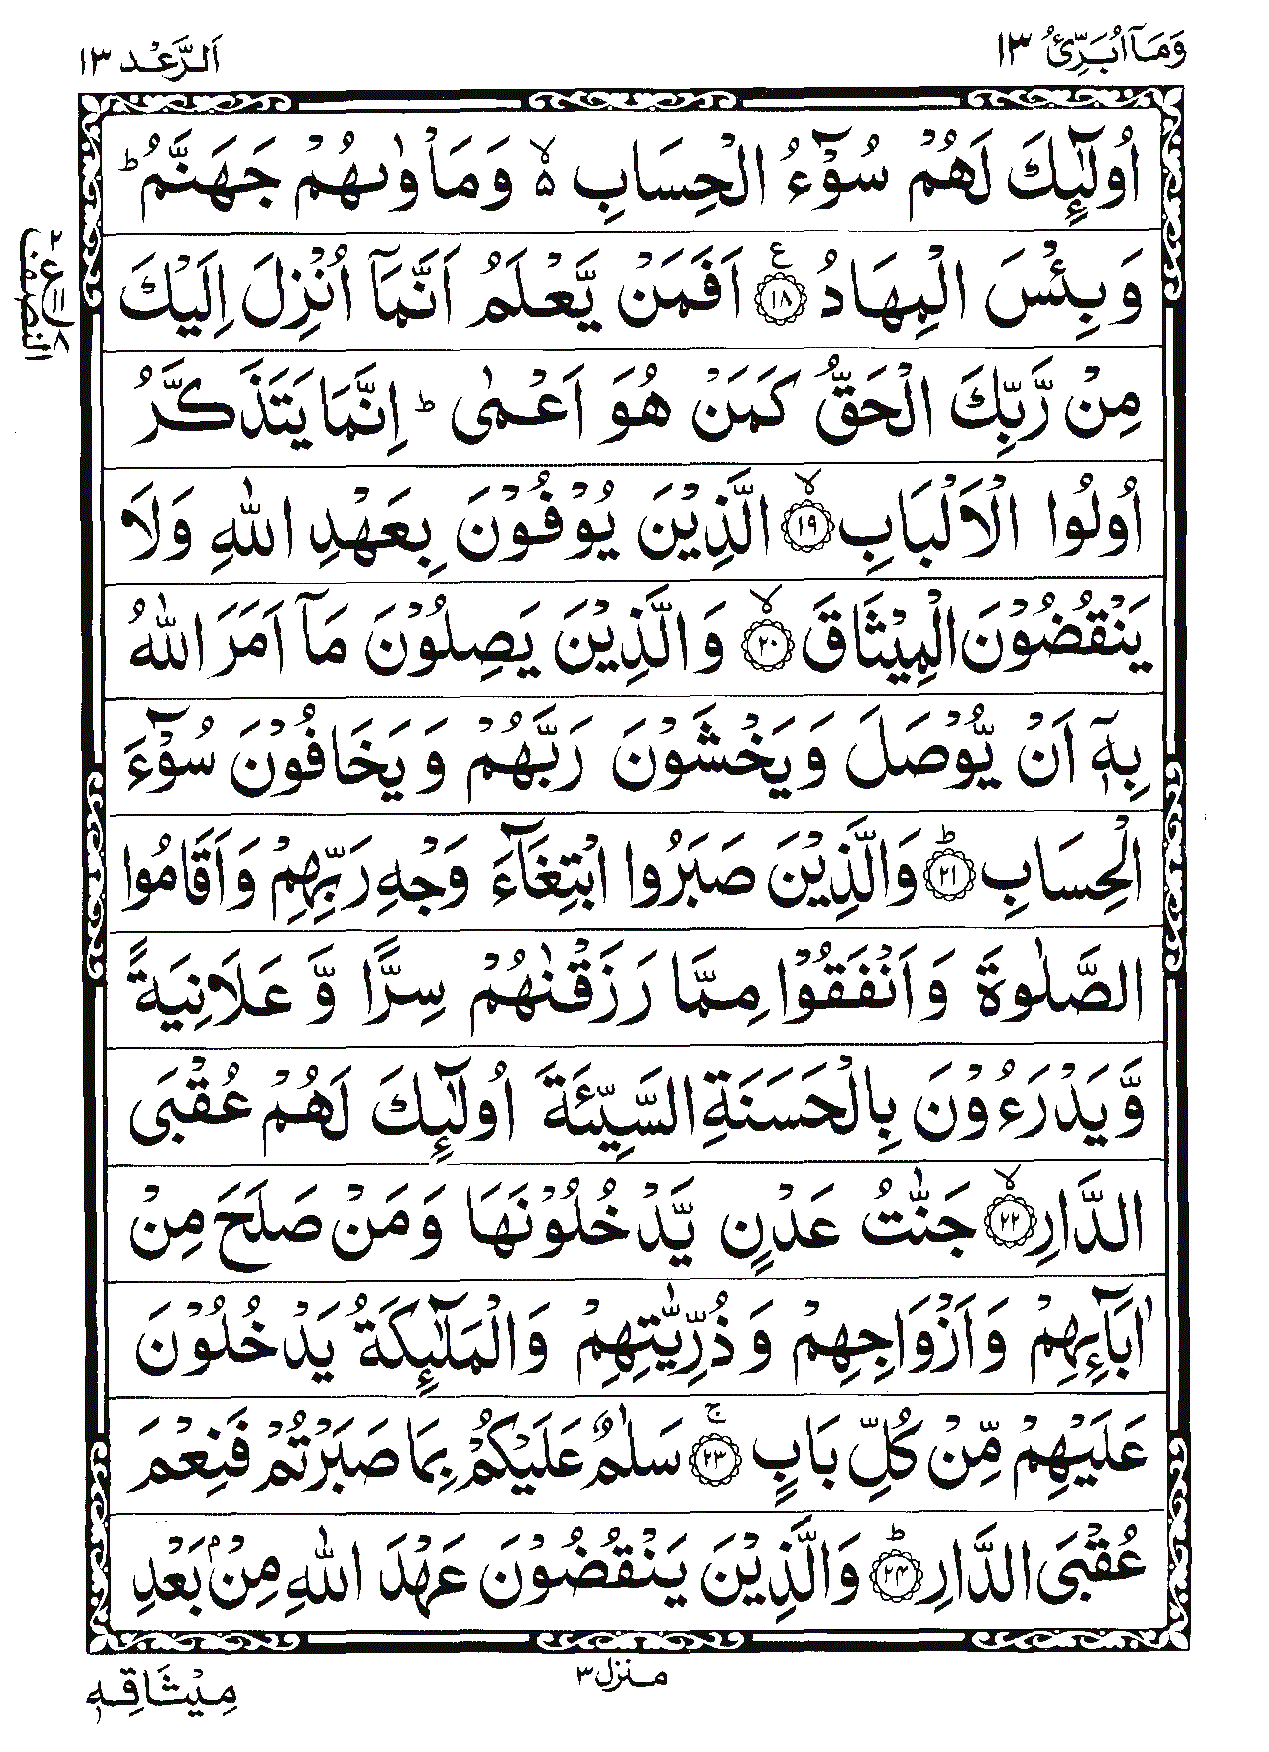 وَمَآ اُبَرِّئُ ١٣
اَلرَّعْد ١٣
اُولٰٓئِكَ لَهُمْ سُوْٓءُ الْحِسَابِ ۵ۙ وَمَاْوٰىهُمْ جَهَنَّمُ ؕ
وَبِئْسَ الْمِهَادُ ﴿١٨﴾ۧ اَفَمَنْ يَّعْلَمُ اَنَّمَآ اُنْزِلَ اِلَيْكَ
مِنْ رَّبِّكَ الْحَقُّ كَمَنْ هُوَ اَعْمٰى ؕ اِنَّمَا يَتَذَكَّرُ
اُولُوا الْاَلْبَابِ ﴿١٩﴾ۙ الَّذِيْنَ يُوْفُوْنَ بِعَهْدِ اللّٰهِ وَلَا
يَنْقُضُوْنَ الْمِيْثَاقَ ﴿٢٠﴾ۙ وَالَّذِيْنَ يَصِلُوْنَ مَآ اَمَرَ اللّٰهُ
بِهٖٓ اَنْ يُّوْصَلَ وَيَخْشَوْنَ رَبَّهُمْ وَيَخَافُوْنَ سُوْٓءَ
الْحِسَابِ ﴿٢١﴾ؕ وَالَّذِيْنَ صَبَرُوا ابْتِغَآءَ وَجْهِ رَبِّهِمْ وَاَقَامُوا
الصَّلٰوةَ وَاَنْفَقُوْا مِمَّا رَزَقْنٰهُمْ سِرًّا وَّ عَلَانِيَةً
وَّيَدْرَءُوْنَ بِالْحَسَنَةِ السَّيِّئَةَ اُولٰٓئِكَ لَهُمْ عُقْبَى
الدَّارِ ﴿٢٢﴾ۙ جَنّٰتُ عَدْنٍ يَّدْخُلُوْنَهَا وَمَنْ صَلَحَ مِنْ
اٰبَآئِهِمْ وَاَزْوَاجِهِمْ وَذُرِّيّٰتِهِمْ وَالْمَلٰٓئِكَةُ يَدْخُلُوْنَ
عَلَيْهِمْ مِّنْ كُلِّ بَابٍ ﴿٢٣﴾ۚ سَلٰمٌ عَلَيْكُمْ بِمَا صَبَرْتُمْ فَنِعْمَ
عُقْبَى الدَّارِ ﴿٢٤﴾ؕ وَالَّذِيْنَ يَنْقُضُوْنَ عَهْدَ اللّٰهِ مِنْۢ بَعْدِ
النصف
منزل ٣
مِيْثَاقِهٖ